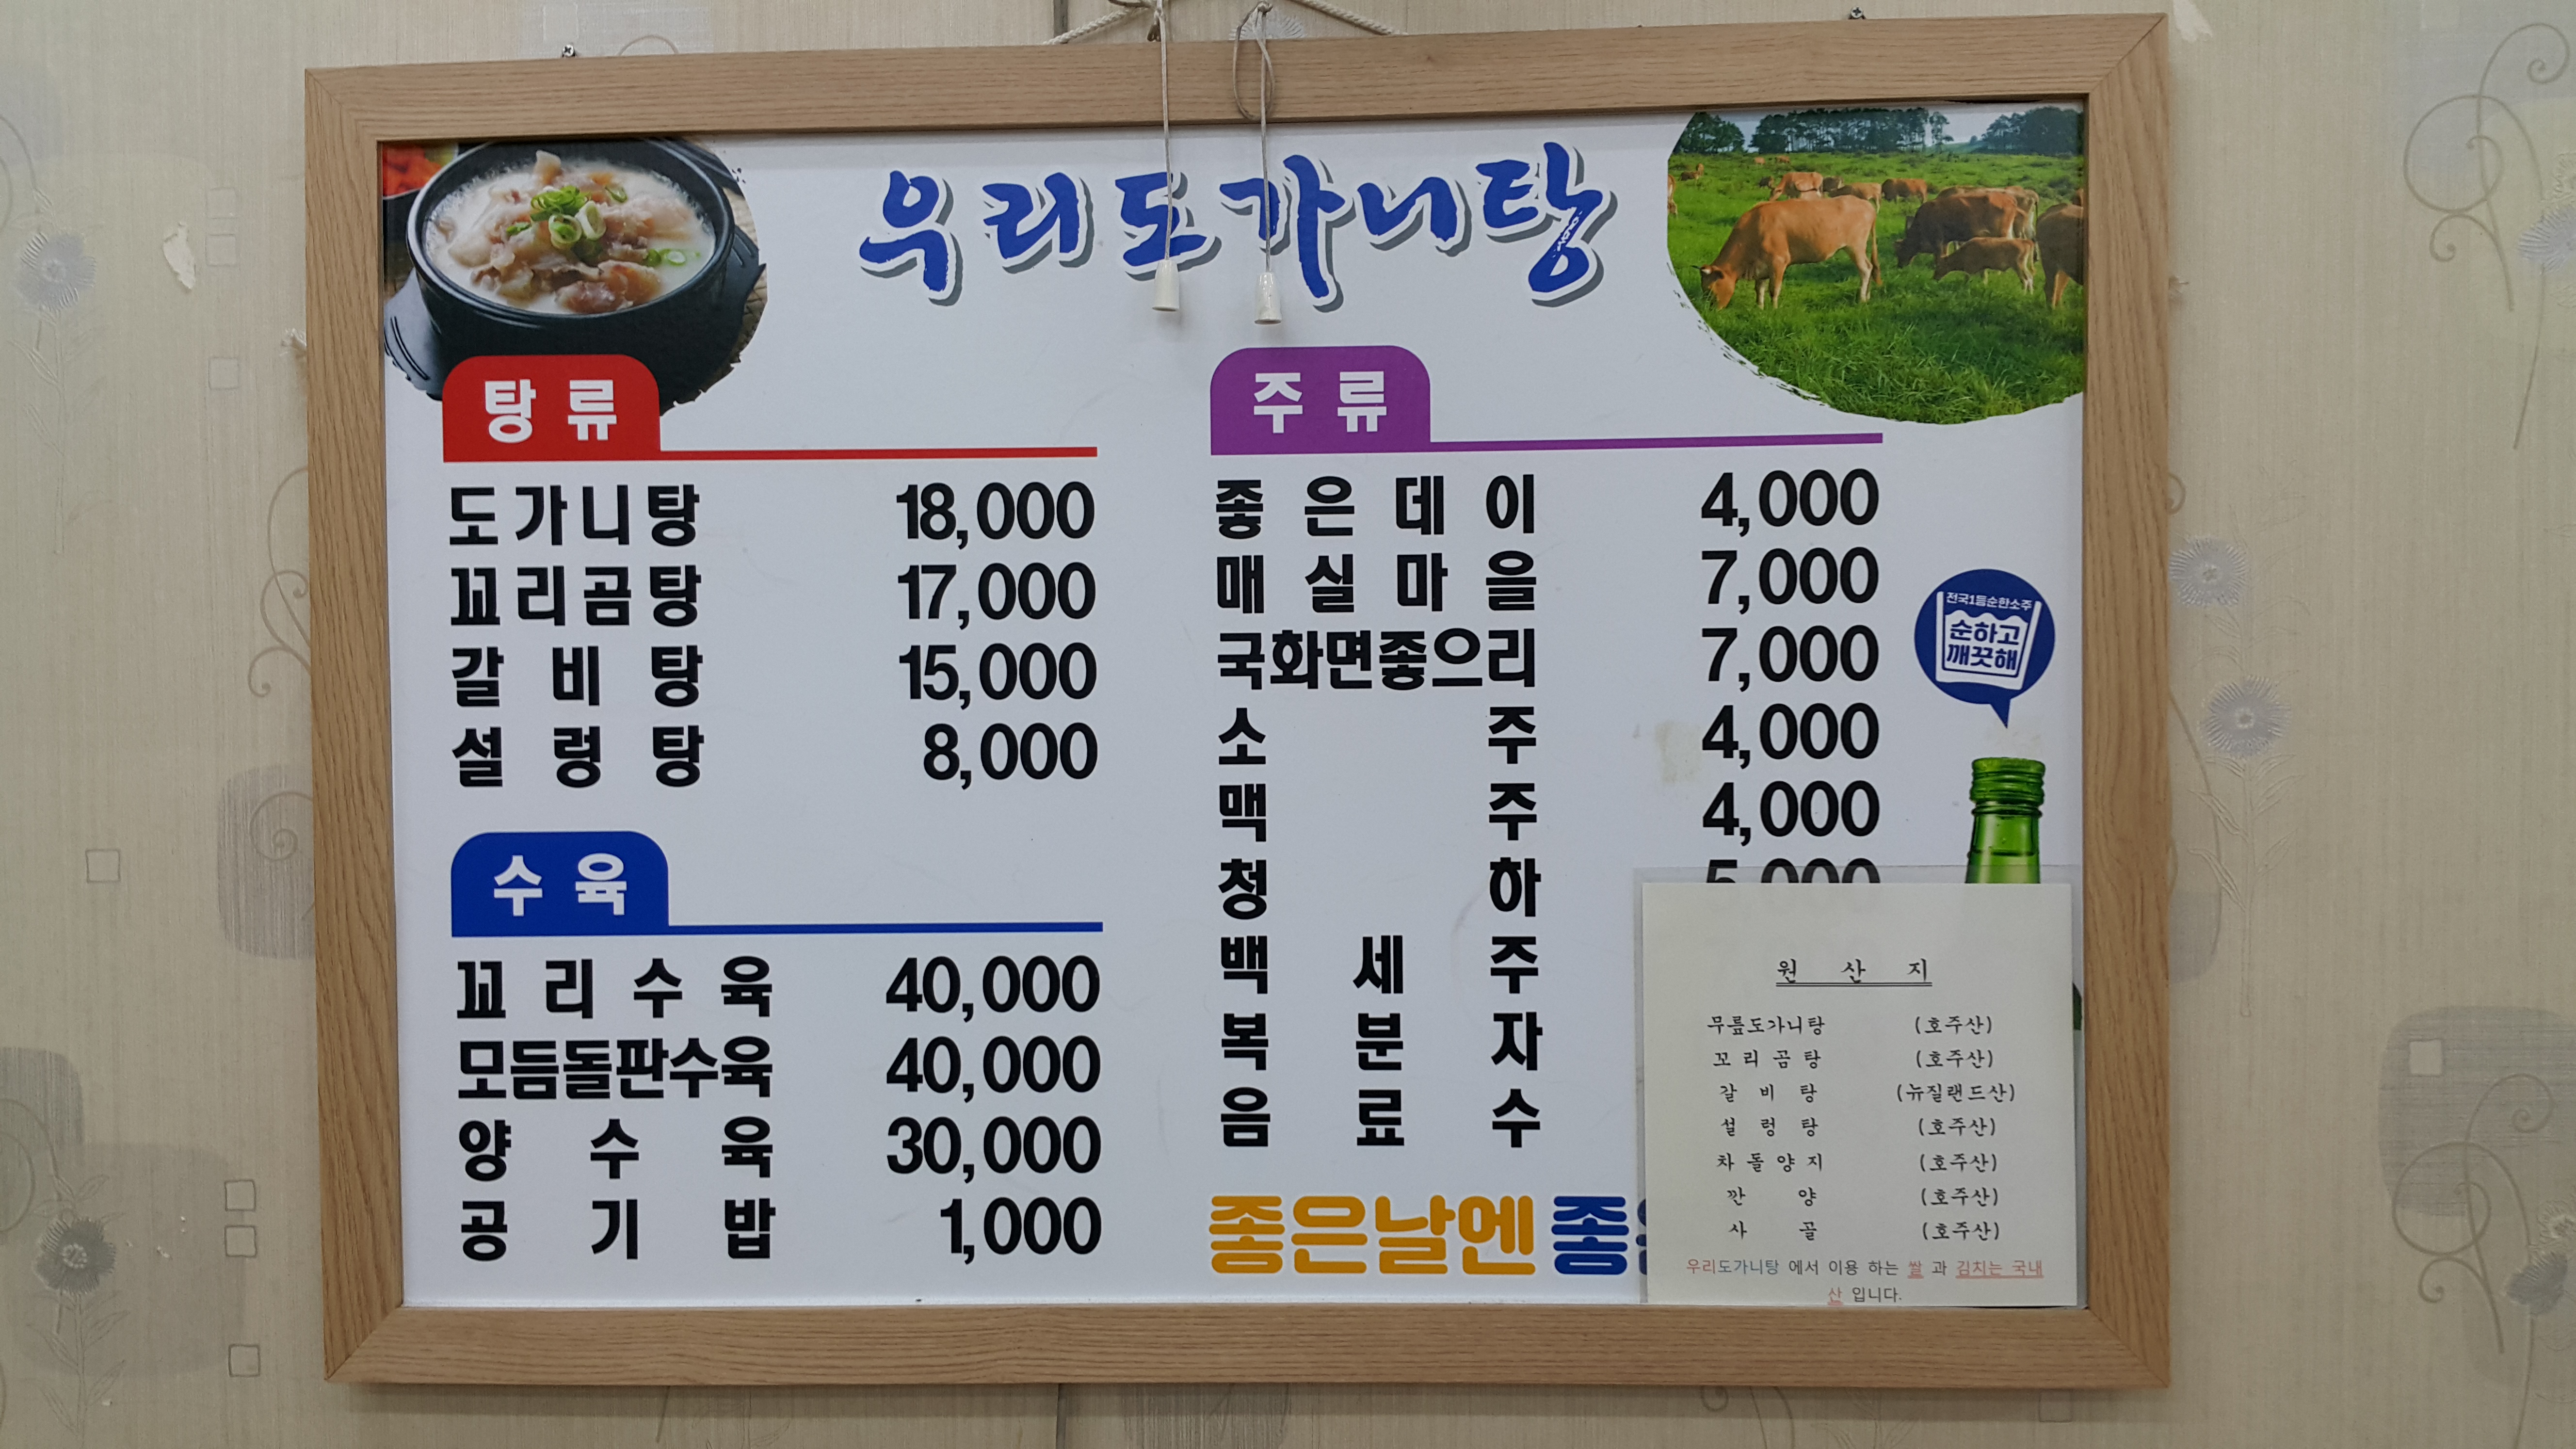 우리도가니탕
탕류
도가니탕 18,000
꼬리곰탕 17,000
갈비탕 15,000
설렁탕 8,000
수육
꼬리수육 40,000
모듬돌판수육 40,000
양수육 30,000
공기밥 1,000
주류
좋은데이 4,000
매실마을 7,000
국화면좋으리 7,000
소주 4,000
맥주 4,000
청하 5,000
백세주
복분자
음료수
좋은날엔
전국1등순한소주
순하고
깨끗해
원산지
무릎도가니탕 (호주산)
꼬리곰탕 (호주산)
갈비탕 (뉴질랜드산)
설렁탕 (호주산)
차돌양지 (호주산)
깐양 (호주산)
사골 (호주산)
우리도가니탕 에서 이용 하는 쌀 과 김치는 국내
산 입니다.